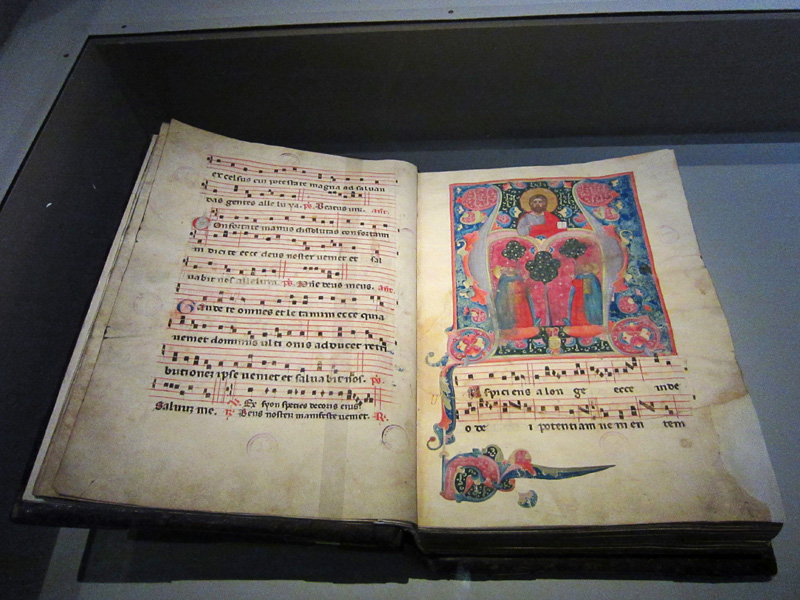 excelsus cui potestas magna ad saluan
das gentes alle lu ya. ps. Beatus uir. ant.
Confortate manus dissolutas confortami
ni dicite ecce deus noster ueniet et sal
uabit nos alleluya. ps. Dñe deus meus. ant.
Gaudete omnes et letamini ecce quia
ueniet dominus ultionis adducet retri
butionez ipse ueniet et saluabit nos. ps.
Saluuz me. v. Ex syon species decoris eius.
r. Deus noster manifeste ueniet. R.
Aspiciens a lon ge ecce uide
o de i potentiam ue ni en tem